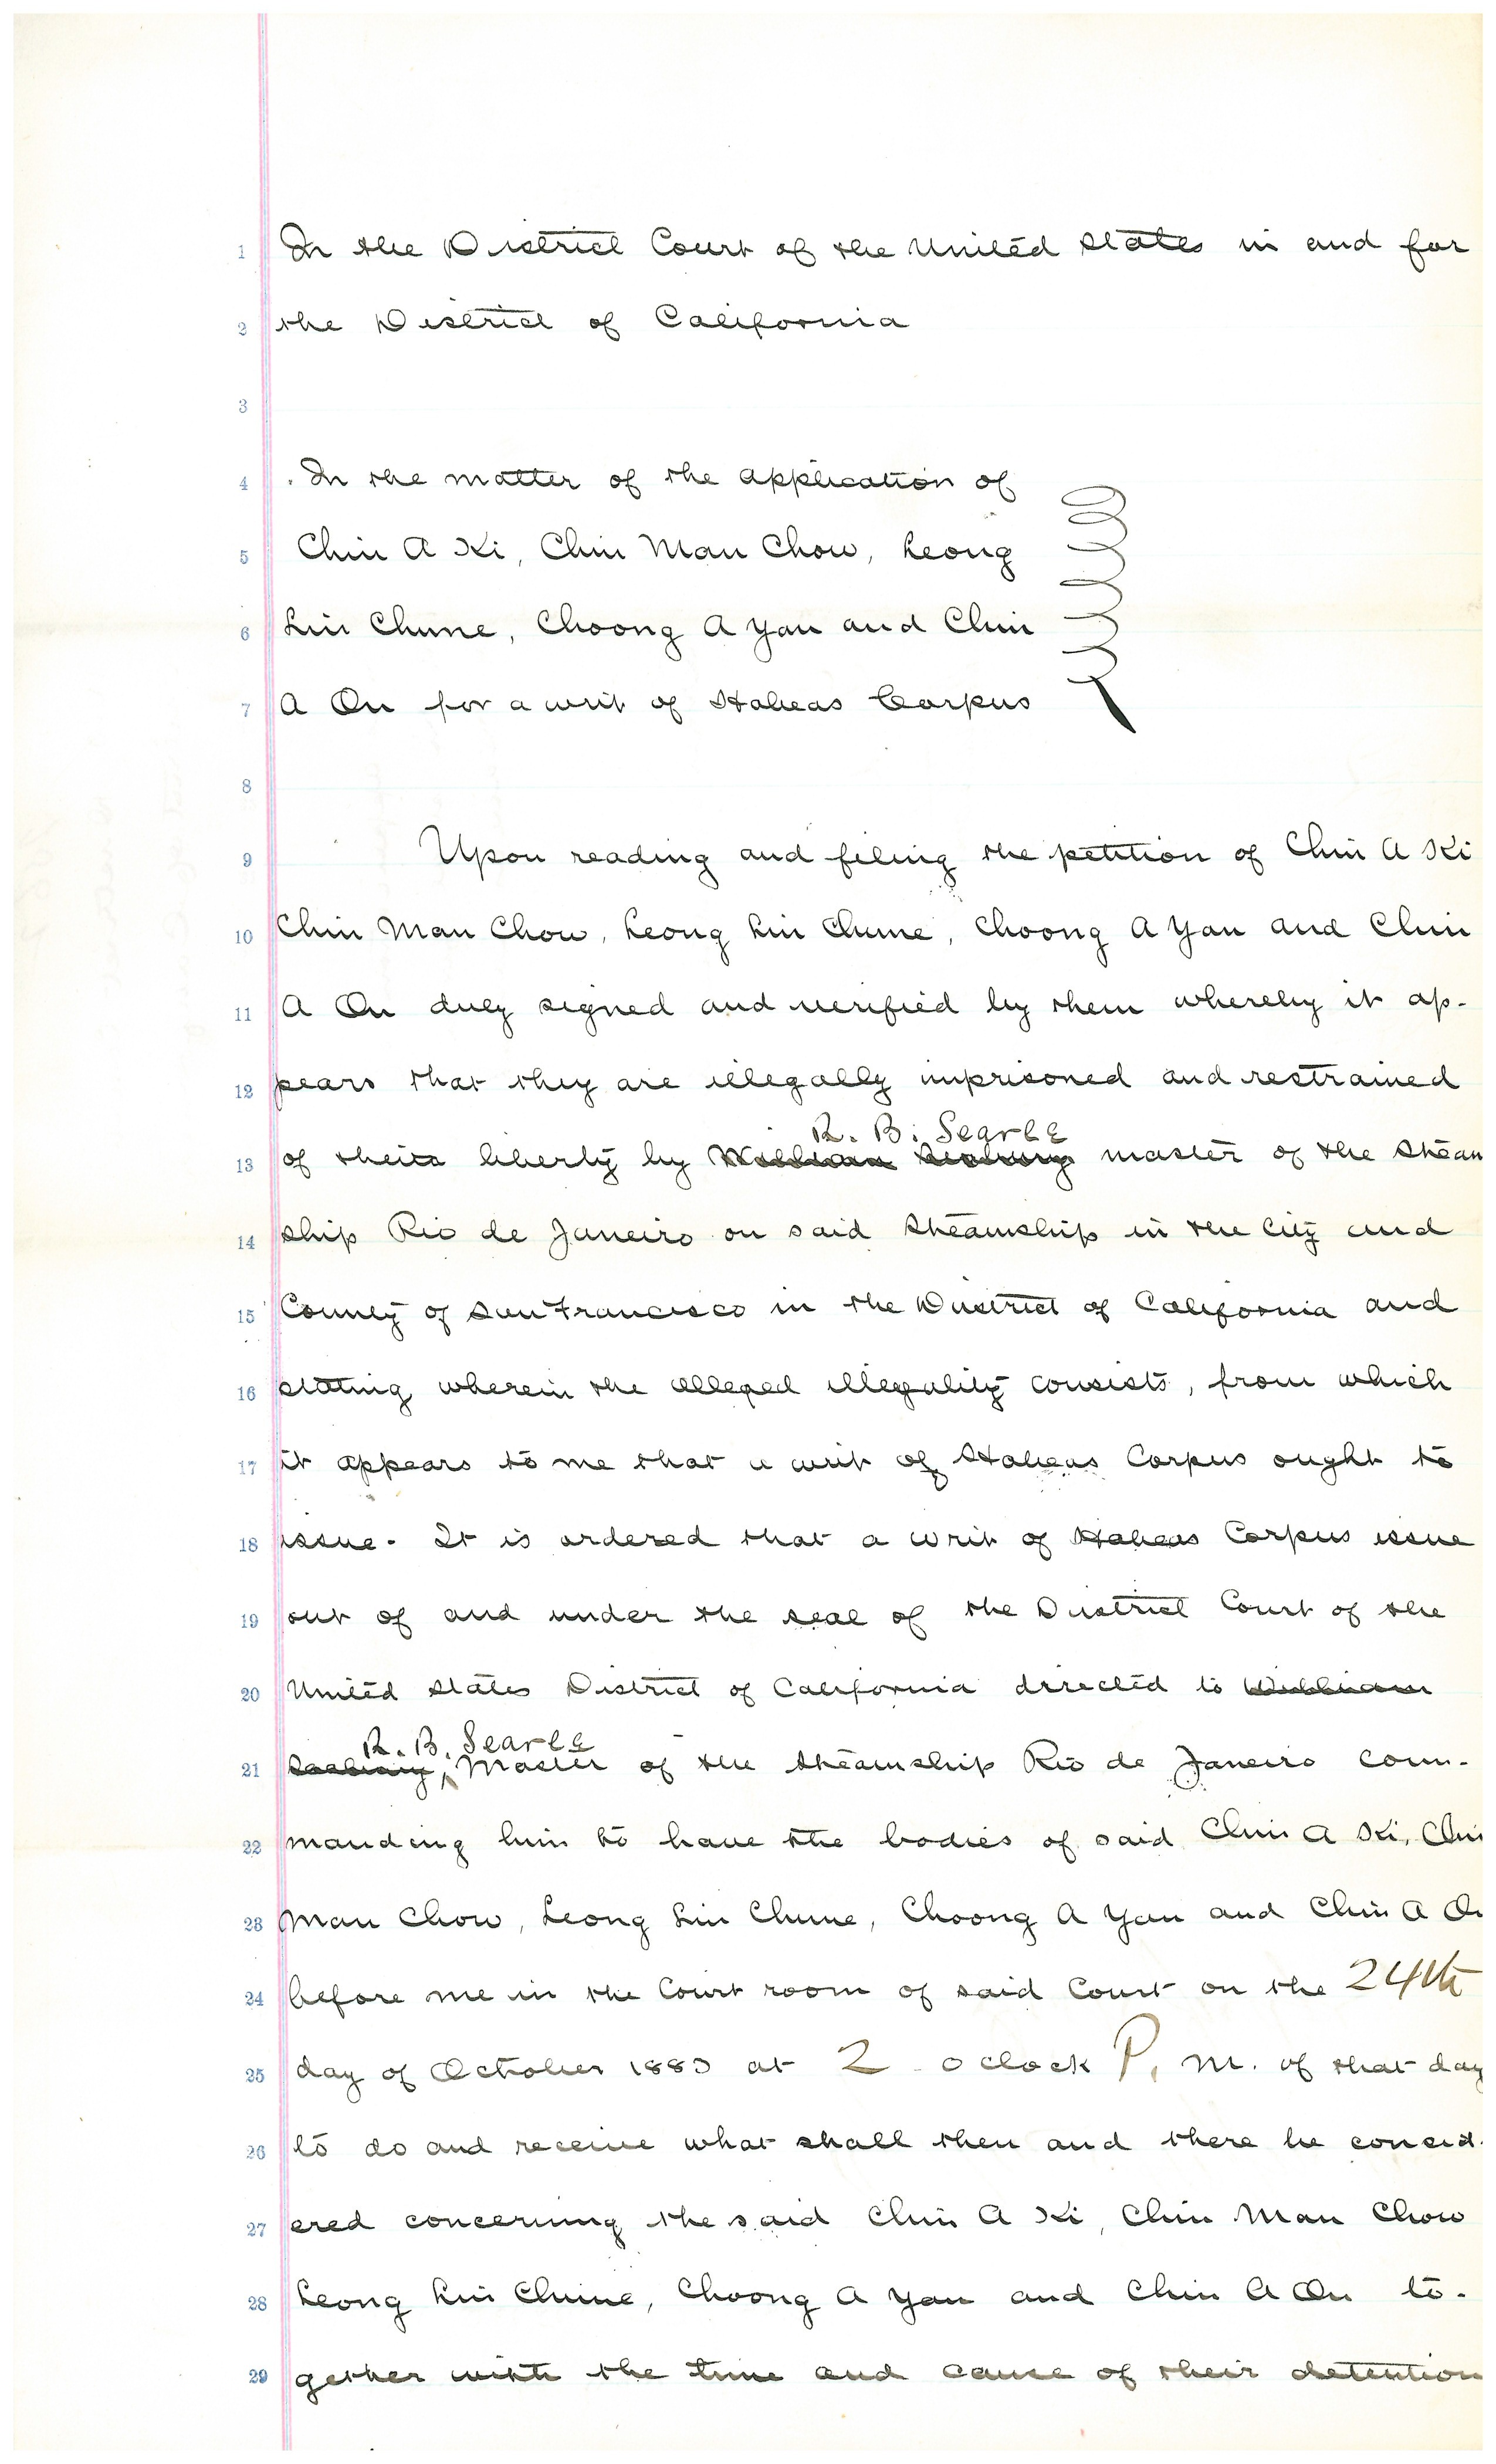 1 In the District Court of the United States in and for
2 the District of California
3
4 In the matter of the application of
5 Chin A Ki, Chin Man Chow, Leong
6 Lin Chune, Choong A Yan and Chin
7 A On for a writ of Habeas Corpus
8
9 Upon reading and filing the petition of Chin A Ki
10 Chin Man Chow, Leong Lin Chune, Choong A Yan and Chin
11 A On duly signed and verified by them whereby it ap-
12 pears that they are illegally imprisoned and restrained
R. B. Searle
13 of their liberty by William master of the Steam
14 ship Rio de Janeiro on said Steamship in the City and
15 County of San Francisco in the District of California and
16 stating wherein the alleged illegality consists, from which
17 it appears to me that a writ of Habeas Corpus ought to
18 issue. It is ordered that a writ of Habeas Corpus issue
19 out of and under the seal of the District Court of the
20 United States District of California directed to William
R. B. Searle
21 Master of the Steamship Rio de Janeiro com-
22 manding him to have the bodies of said Chin A Ki, Chi
23 Man Chow, Leong Lin Chune, Choong A Yan and Chin A O
24 before me in the Court room of said Court on the 24th
25 day of October 1883 at 2 o clock P. M. of that day
26 to do and receive what shall then and there be consid
27 ered concerning the said Chin A Ki, Chin Man Chow
28 Leong Lin Chune, Choong A Yan and Chin A On to-
29 gether with the time and cause of their detention